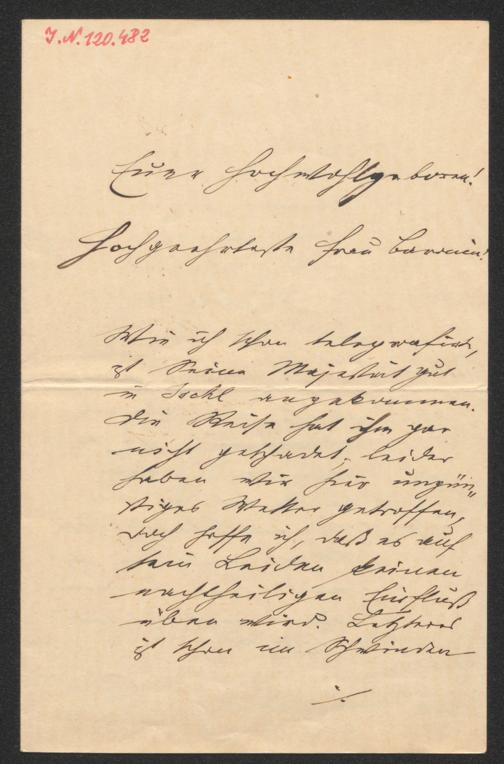 J.N. 120.482
Euer Hochwohlgeboren!
Hochgeehrteste Frau Baronin!
Wie ich schon telegrafirt,
ist Seine Majestät gut
in Ischl angekommen.
Die Reise hat ihm gar
nicht geschadet, leider
haben wir hier ungün-
stiges Wetter getroffen,
doch hoffe ich, daß es auf
sein Leiden keinen
nachtheiligen Einfluß
üben wird. Letzteres
ist schon im Schwinden
./.